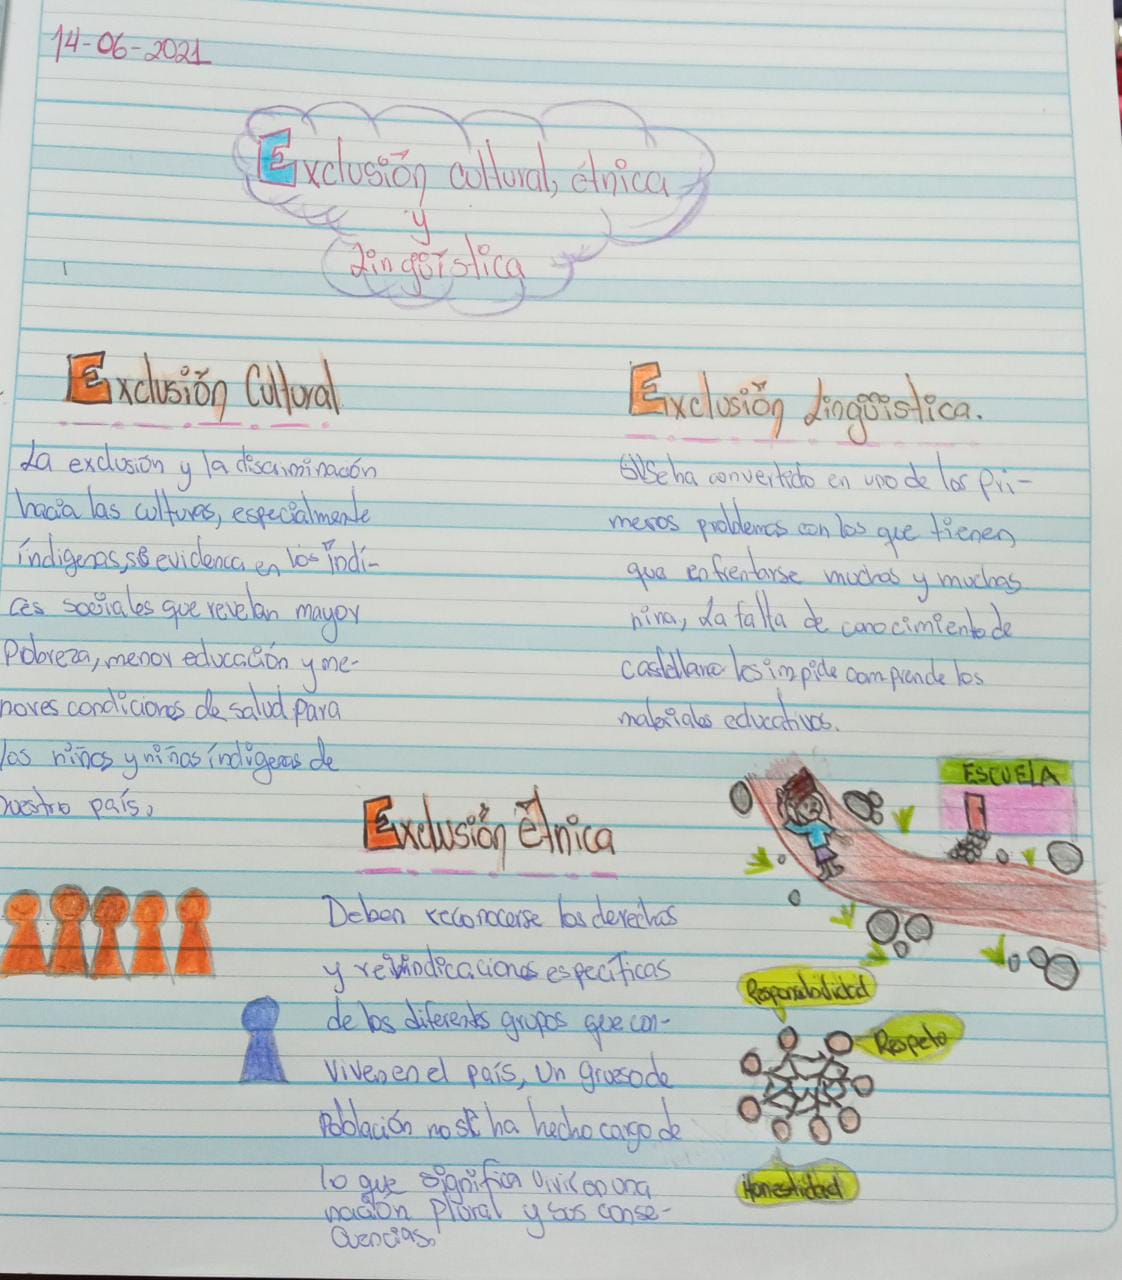 14-06-2021
Exclusión cultural, étnica
y
Lingüística
Exclusión Cultural
La exclusión y la discriminación
hacia las culturas, especialmente
indígenas, se evidenca en los indi-
ces sociales que revelan mayor
Pobreza, menor educación y me-
nores condiciones de salud para
los niños y niñas indígenas de
nuestro país,
Exclusión Lingüística.
Se ha convertido en uno de los pri-
meros problemas con los que tienen
que enfrentarse muchos y muchas
nina, La falta de conocimiento de
castellano les impide comprende los
materiales educativos.
ESCUELA
Exclusión étnica
Deben reconocerse los derechos
y reivindicaciones específicas
de los diferents grupos que con-
viven en el país, Un grueso de
Población no se ha hecho cargo de
lo que significa vivir en una
nación Plural y sus conse-
cuencias.
Responsabilidad
Respeto
Honestidad